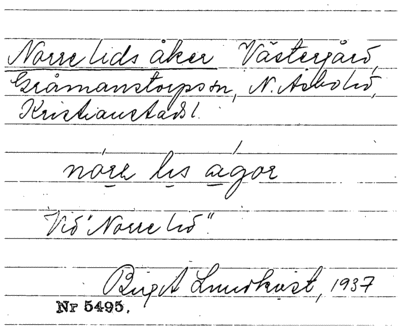 Norrelids åker Västergård,
Gråmanstorps sn, N. Asbo hd,
Kristianstads l.
nóre lis ágor
Vid "Norrelid".
Birgit Lundkvist, 1937
Nr 5495.